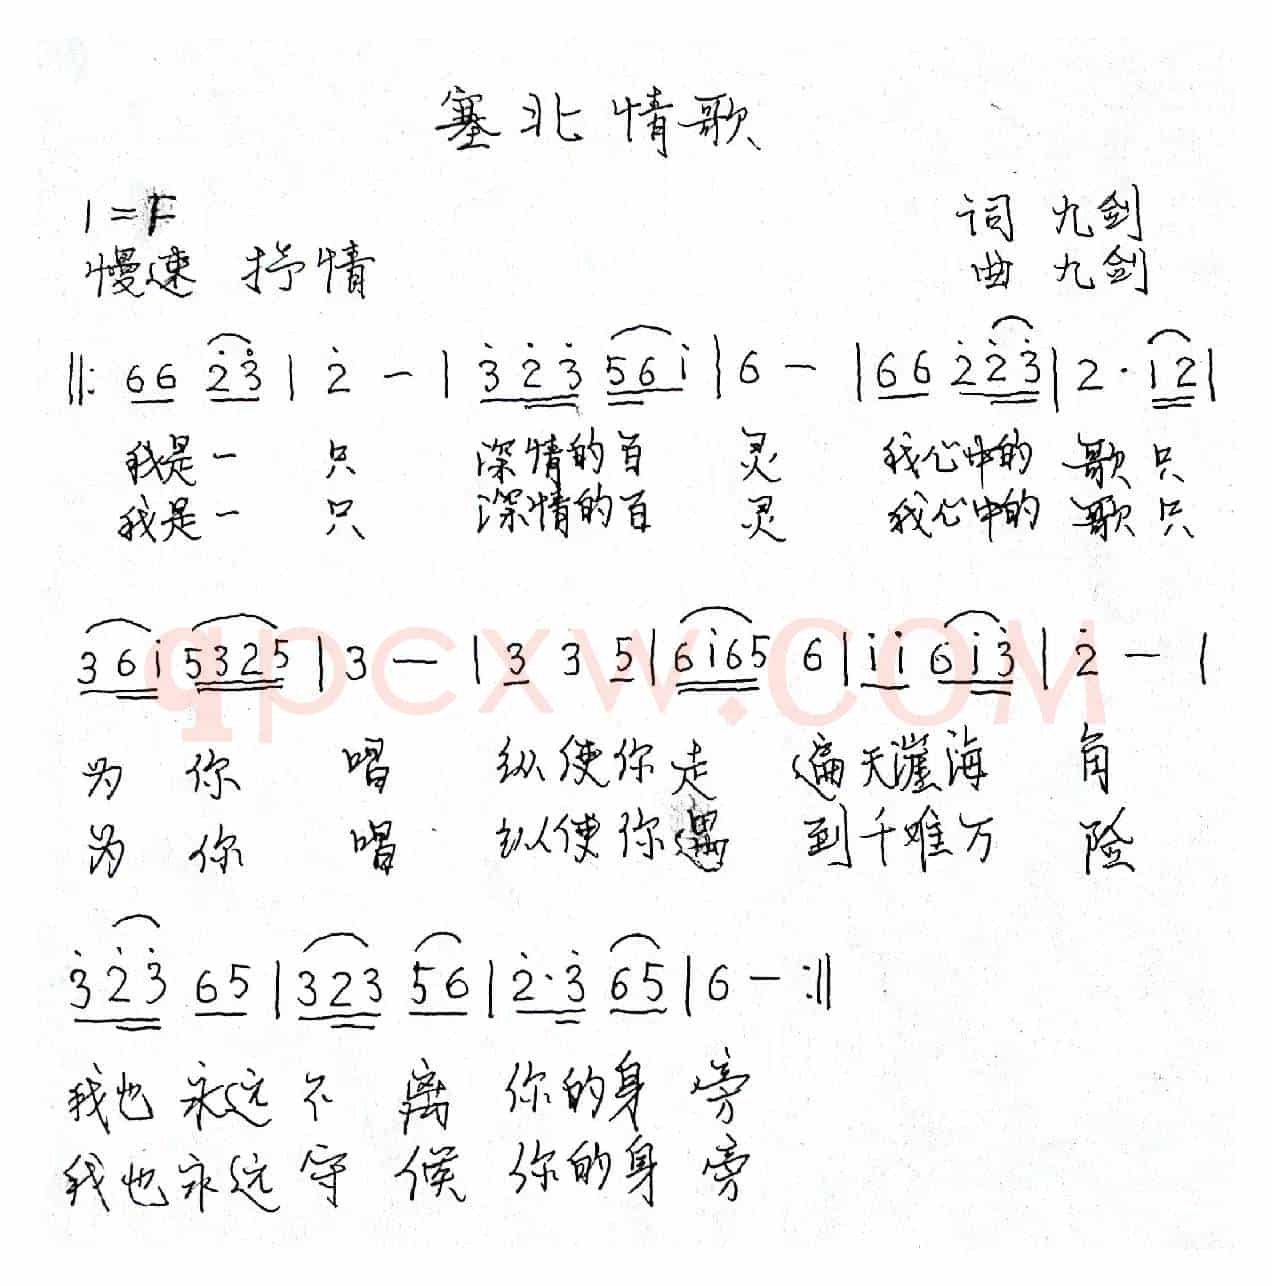 塞北情歌
1=F
词 九剑
慢速 抒情
曲 九剑
‖: 66 2̇3̇ | 2̇ － | 3̇2̇3̇ 561̇ | 6 － | 66 2̇2̇3̇ | 2 · 1̇2 |
我是一 只 深情的百 灵 我心中的 歌只
我是一 只 深情的百 灵 我心中的 歌只
361̇ 5325 | 3 － | 3 3 5 | 61̇65 6 | 1̇1̇ 61̇3̇ | 2̇ － |
为 你 唱 纵使你走 遍天涯海 角
为 你 唱 纵使你遇 到千难万 险
3̇2̇3̇ 65 | 323 56 | 2̇·3̇ 65 | 6 － :‖
我也 永远 不 离 你的身 旁
我也永远 守 候 你的身 旁
qpcxw.COM